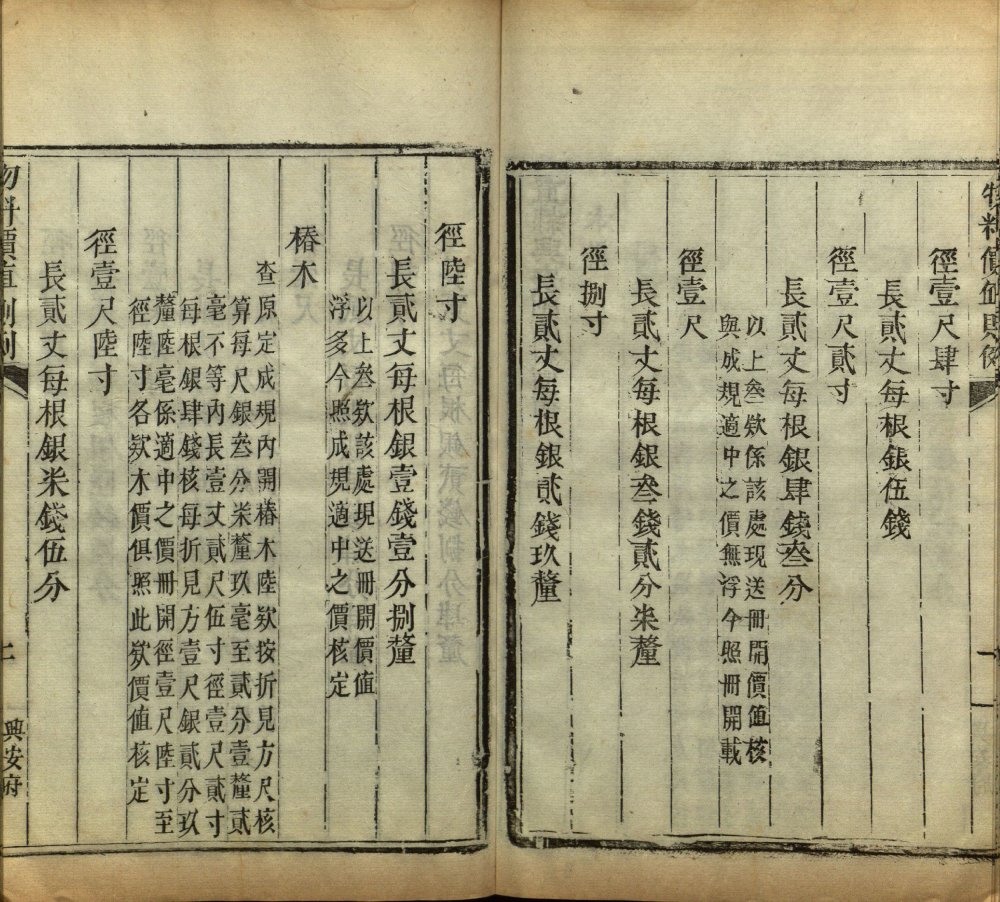 物料價值則例
徑壹尺肆寸
長貳丈每根銀伍錢
徑壹尺貳寸
長貳丈每根銀肆錢叁分
以上叁欵係該處現送冊開價值核
與成規適中之價無浮今照冊開載
徑壹尺
長貳丈每根銀叁錢貳分柒釐
徑捌寸
長貳丈每根銀貳錢玖釐
徑陸寸
長貳丈每根銀壹錢壹分捌釐
以上叁欵該處現送冊開價值
浮多今照成規適中之價核定
椿木
查原定成規內開椿木陸欵按折見方尺核
算每尺銀叁分柒釐玖毫至貳分壹釐貳
毫不等內長壹丈貳尺伍寸徑壹尺貳寸
每根銀肆錢核每折見方壹尺銀貳分玖
釐陸毫係適中之價冊開徑壹尺陸寸至
徑陸寸各欵木價俱照此欵價值核定
徑壹尺陸寸
長貳丈每根銀柒錢伍分
物料價值則例
二
興安府